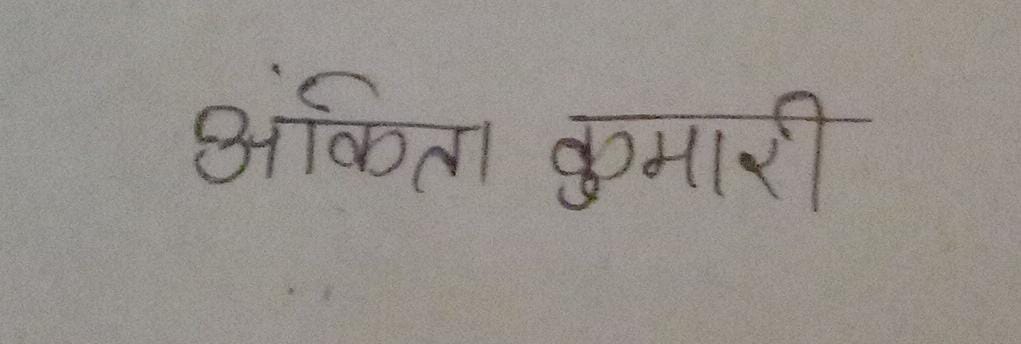 अंकिता कुमारी